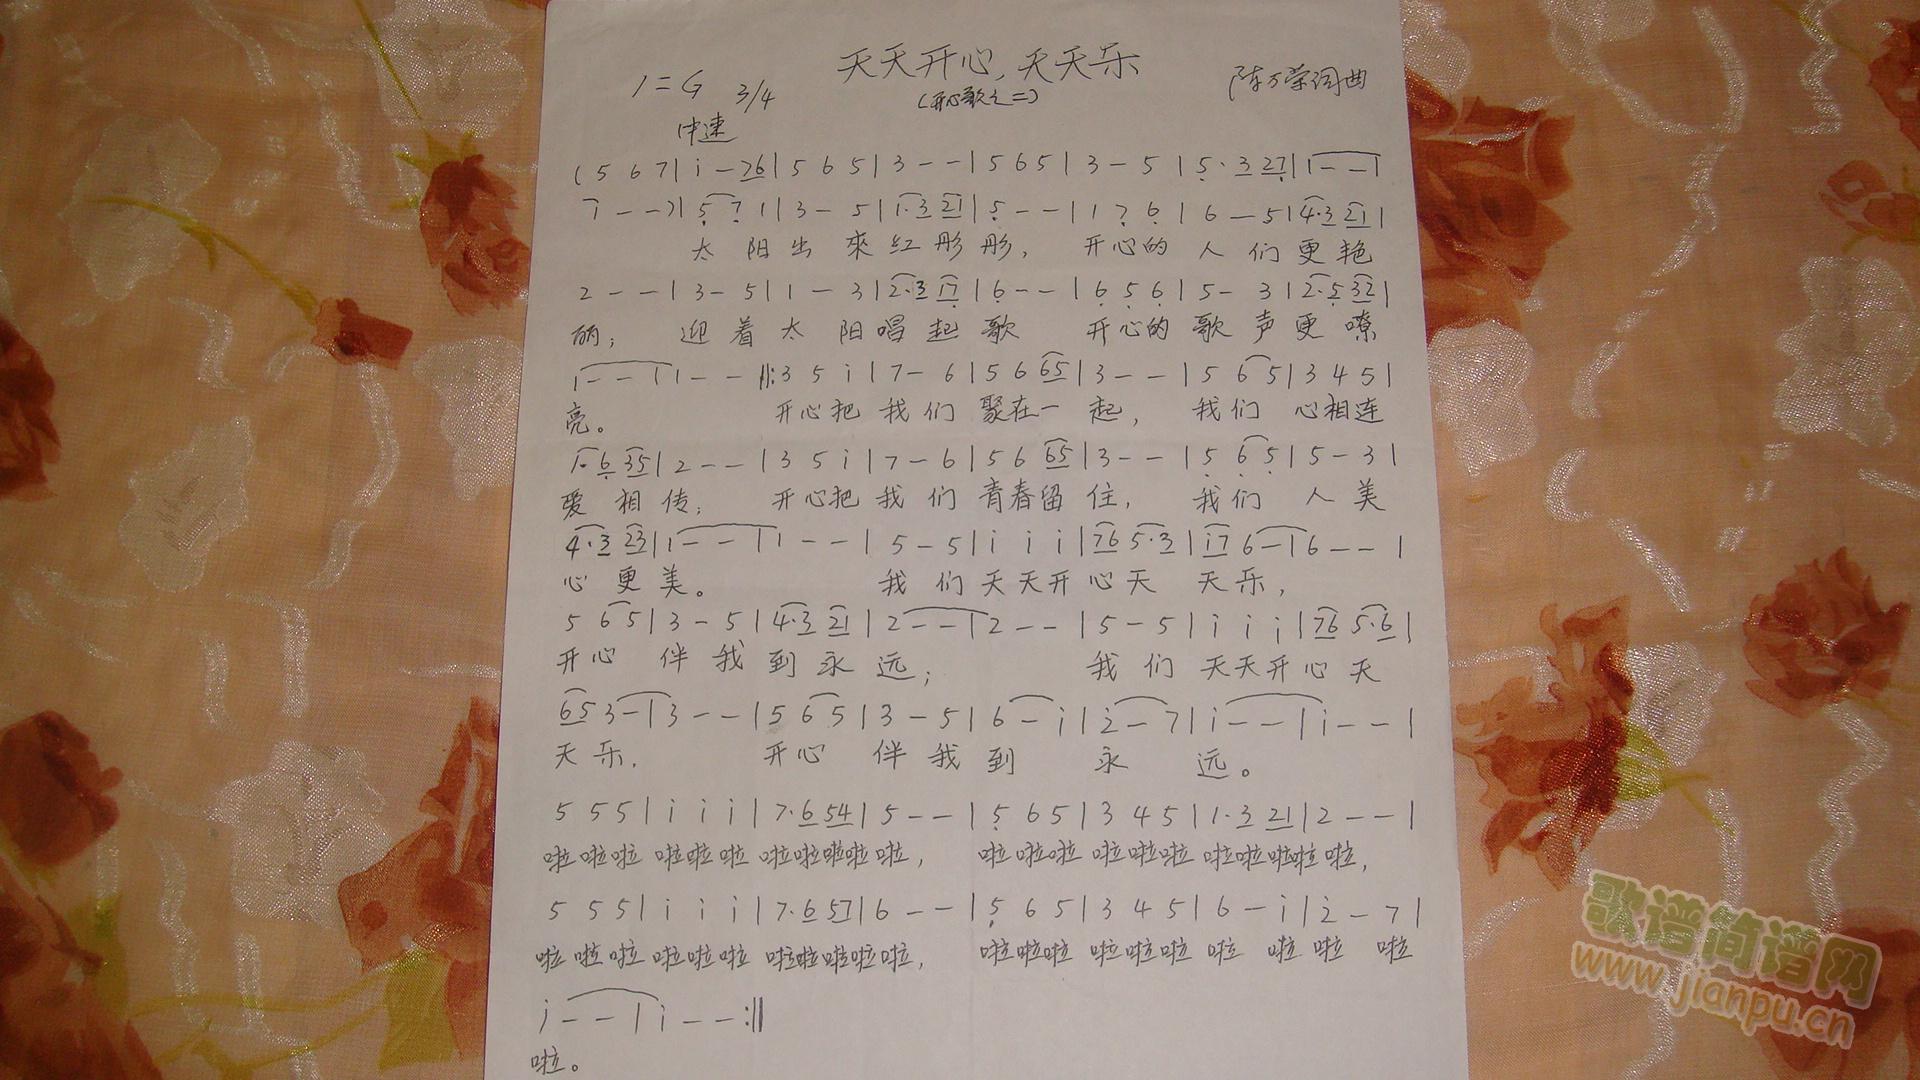 天天开心,天天乐
1=G 3/4 (开心歌之二) 陈万荣词曲
中速
(5 6 7| i - 76| 5 6 5| 3 - - | 5 6 5| 3 - 5 | 5· 3 27| 1 - - |
1 - - )| 5 7 1| 3 - 5| 1·3 21| 5 - - | 1 7 6 | 6 - 5| 4·3 21|
太 阳 出 來 红 彤 彤, 开心的 人 们 更 艳
2 - - | 3 - 5| 1 - 3| 2·3 17 | 6 - - | 6 5 6| 5 - 3| 2·5 32|
丽; 迎 着 太 阳 唱 起 歌 开心的 歌 声 更 嘹
1 - - | 1 - - ‖: 3 5 i | 7 - 6| 5 6 65| 3 - - | 5 6 5| 3 4 5|
亮。 开心把 我 们 聚在一 起, 我们 心相连
1·6 35| 2 - - | 3 5 i | 7 - 6| 5 6 65| 3 - - | 5 6 5| 5 - 3|
爱 相 传; 开心把 我 们 青春留 住, 我们 人 美
4·3 23| 1 - - | 1 - - | 5 - 5| i i i| 76 5·3 | i7 6 - | 6 - - |
心 更 美。 我 们 天天开 心 天 天 乐,
5 6 5| 3 - 5| 4·3 21 | 2 - - | 2 - - | 5 - 5| i i i| 76 5·6|
开心 伴 我 到 永 远; 我 们 天天开 心 天
65 3 - | 3 - - | 5 6 5| 3 - 5| 6 - i| 2̇ - 7| i - - | i - - |
天 乐. 开心 伴 我 到 永 远。
5 5 5| i i i | 7·6 54| 5 - - | 5 6 5| 3 4 5| 1·3 21| 2 - - |
啦啦啦 啦啦啦 啦啦啦啦 啦, 啦啦啦 啦啦啦 啦啦啦啦 啦,
5 5 5| i i i| 7·6 57| 6 - - | 5 6 5| 3 4 5| 6 - i| 2̇ - 7|
啦 啦 啦 啦啦啦 啦啦啦啦 啦, 啦啦啦 啦啦啦 啦 啦 啦 啦
i - - | i - - :‖
啦。
歌谱简谱网
www.jianpu.cn